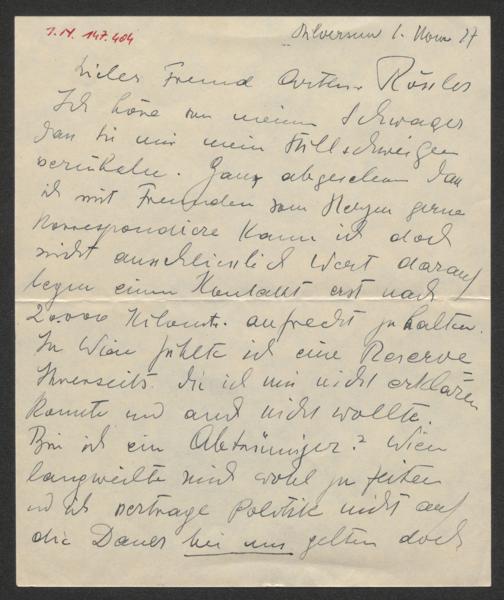 I.N. 147.484
Hilversum 1. Nov 37
Lieber Freund Arthur Rössler
Ich höre von meinem Schwager
dass Sie mir mein Stillschweigen
verübeln. Ganz abgesehen dass
ich mit Freunden vom Herzen gerne
korrespondiere kann ich doch
nicht ausschliesslich Wert darauf
legen einen Kontakt erst nach
20.000 Kilomtr. aufrecht zu halten.
In Wien fühlte ich eine Reserve
Ihrerseits die ich mir nicht erklären
konnte und auch nicht wollte.
Bin ich ein Abtrünniger? Wien
langweilte mich wohl zu zeiten
und ich vertrage Politik nicht auf
die Dauer bei uns gelten doch